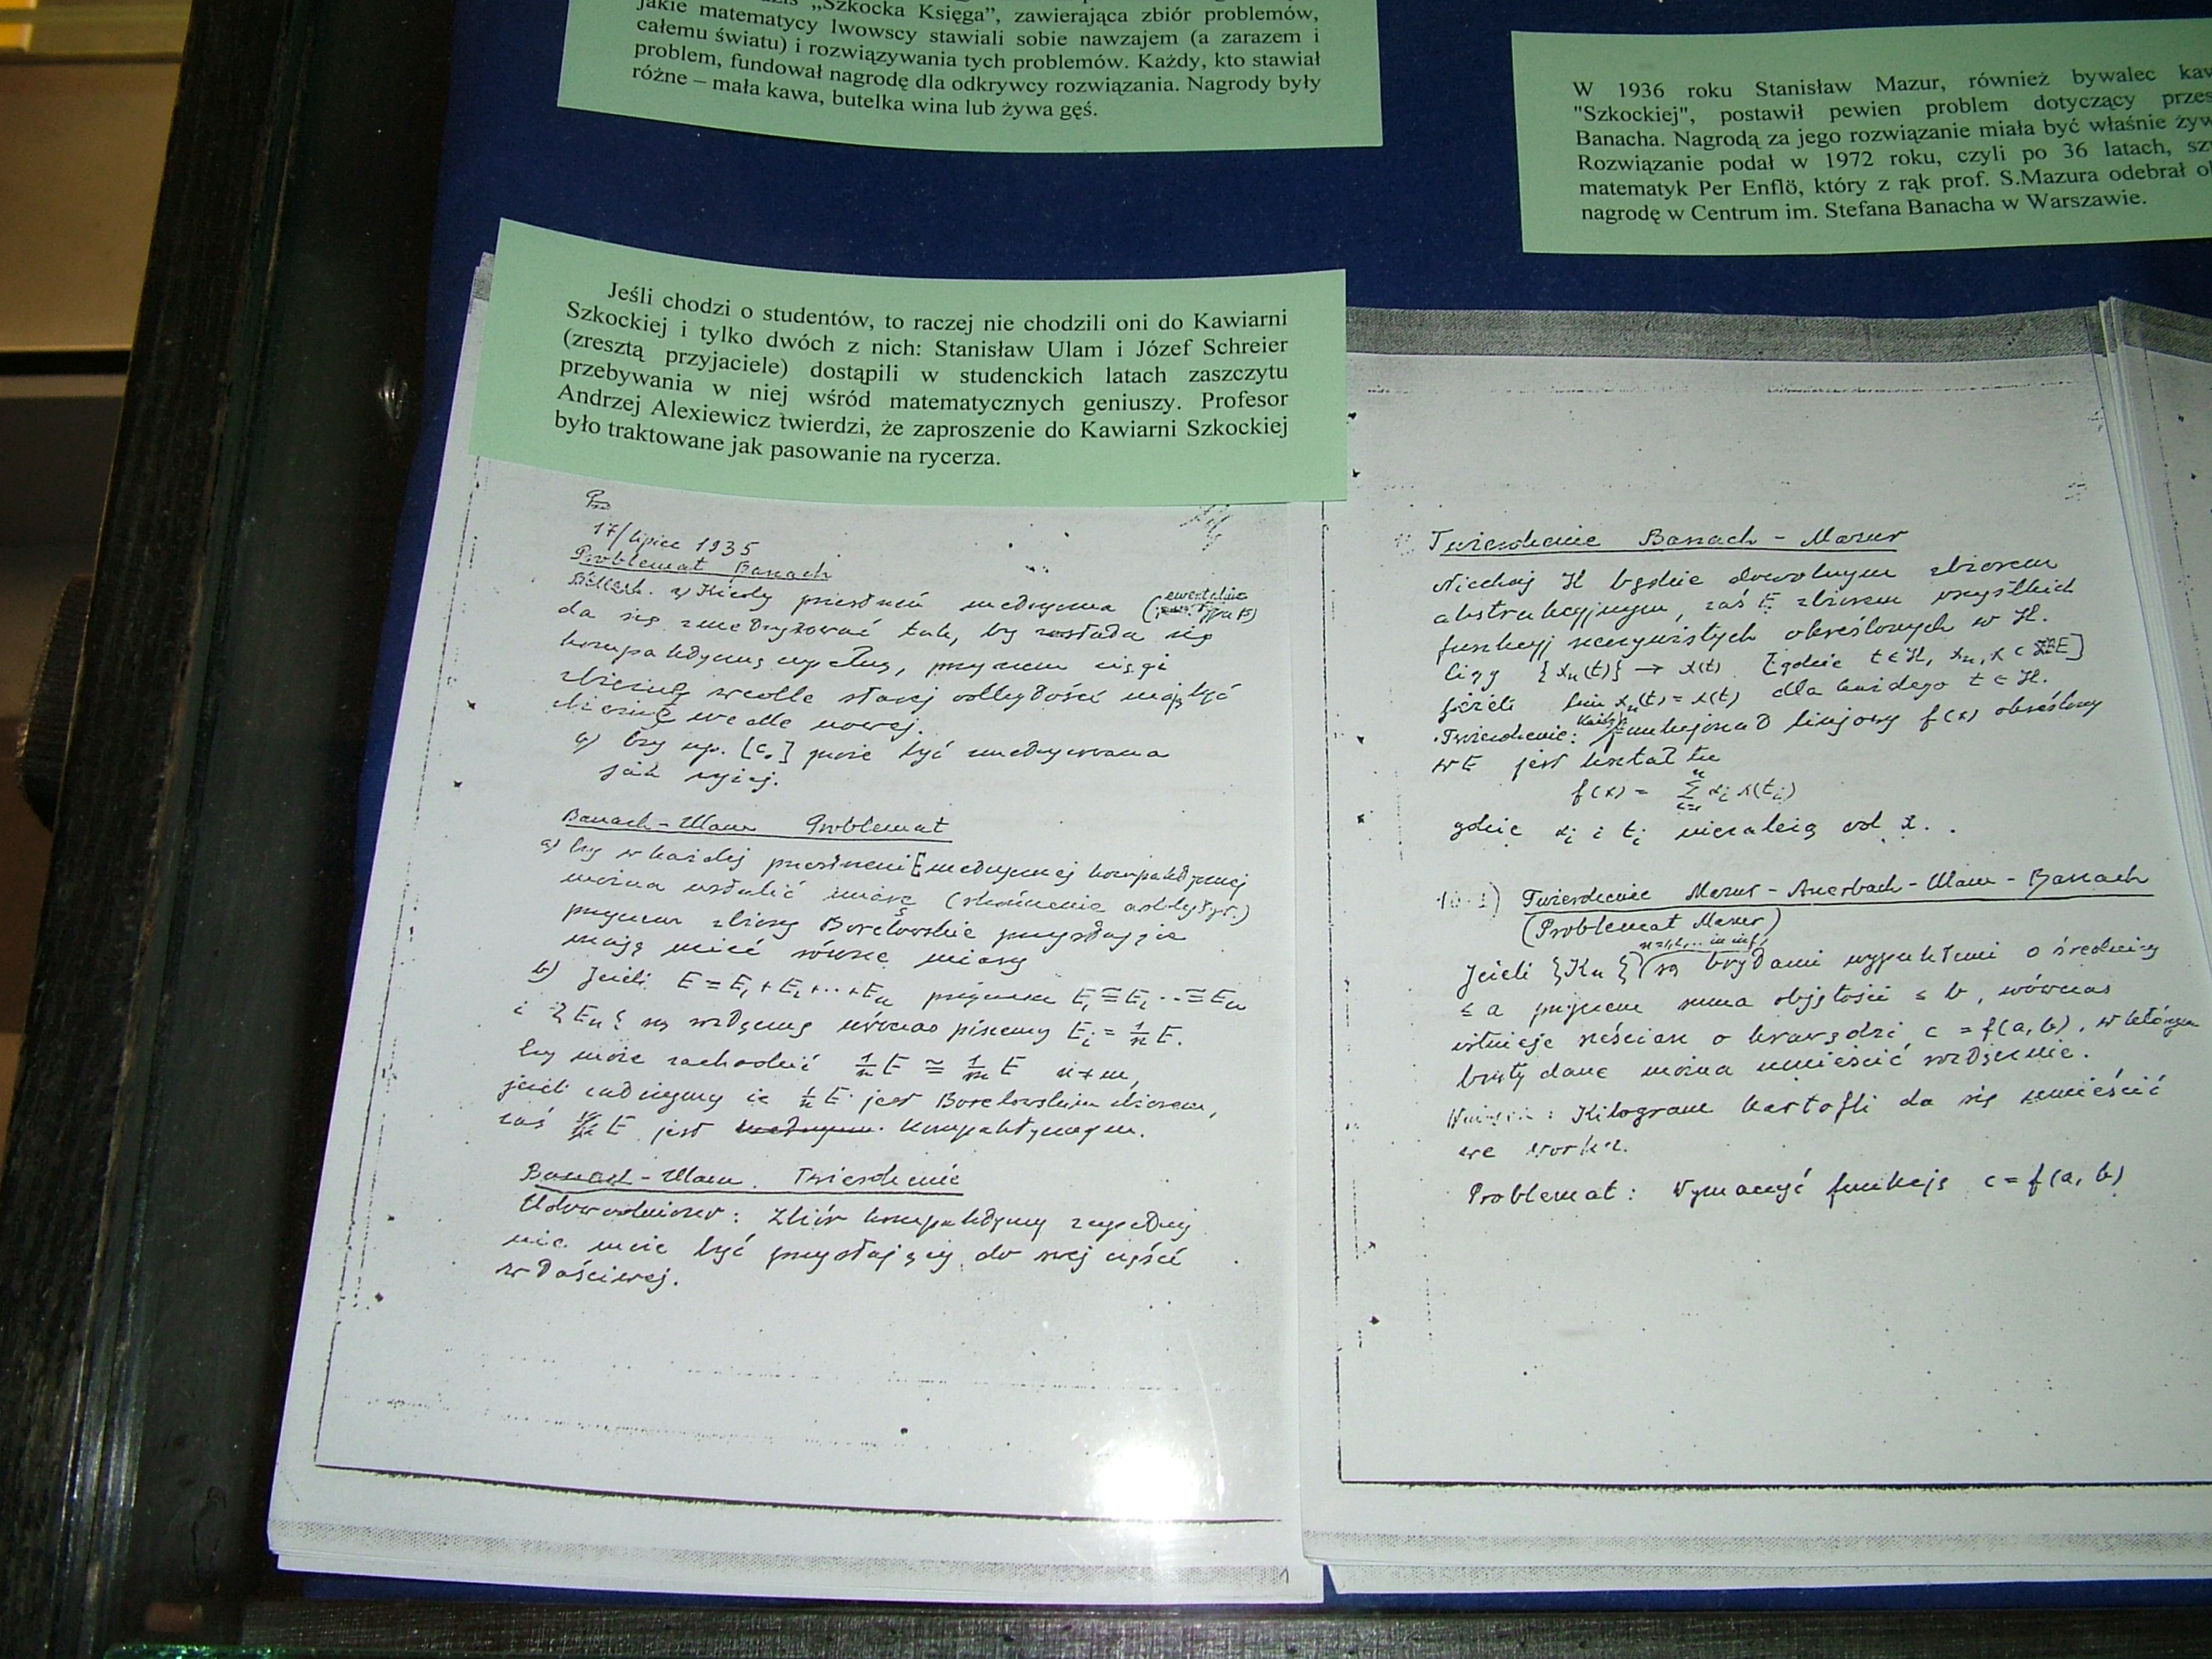 „Szkocka Księga”, zawierająca zbiór problemów,
jakie matematycy lwowscy stawiali sobie nawzajem (a zarazem i
całemu światu) i rozwiązywania tych problemów. Każdy, kto stawiał
problem, fundował nagrodę dla odkrywcy rozwiązania. Nagrody były
różne – mała kawa, butelka wina lub żywa gęś.
W 1936 roku Stanisław Mazur, również bywalec
"Szkockiej", postawił pewien problem dotyczący
Banacha. Nagrodą za jego rozwiązanie miała być właśnie
Rozwiązanie podał w 1972 roku, czyli po 36 latach,
matematyk Per Enflö, który z rąk prof. S.Mazura odebrał
nagrodę w Centrum im. Stefana Banacha w Warszawie.
Jeśli chodzi o studentów, to raczej nie chodzili oni do Kawiarni
Szkockiej i tylko dwóch z nich: Stanisław Ulam i Józef Schreier
(zresztą przyjaciele) dostąpili w studenckich latach zaszczytu
przebywania w niej wśród matematycznych geniuszy. Profesor
Andrzej Alexiewicz twierdzi, że zaproszenie do Kawiarni Szkockiej
było traktowane jak pasowanie na rycerza.
17/lipiec 1935
Problemat Banach
Kiedy przestrzeń metryczna (ewentualnie typu B)
da się zmetryzować tak, by została się
kompaktyczną zupełną, przyczem ciągi
zbieżne wedle starej odległości mają być
zbieżne wedle nowej.
a) Czy np. [c₀] może być zmetryzowana
jak wyżej.
Banach - Ulam Problemat
a) Czy w każdej przestrzeni E metrycznej kompaktycznej
można ustalić miarę (skończenie addytyw.)
przyczem zbiory Borelowskie przystające
mają mieć równe miary
b) Jeżeli E = E₁ + E₂ + ·· + Eₙ przyczem E₁ ≅ E₂ ·· ≅ Eₙ
i {Eₙ} są rozłączne wówczas piszemy Eᵢ = 1/n E.
Czy może zachodzić 1/n E ≅ 1/m E n ≠ m,
jeżeli 1/n E jest Borelowskim zbiorem,
zaś E jest kompaktycznem.
Banach - Ulam. Twierdzenie
Udowodniono: Zbiór kompaktyczny zupełny
nie może być przystający do swej części
właściwej.
Twierdzenie Banach - Mazur
Niechaj H będzie dowolnym zbiorem
abstrakcyjnym, zaś E zbiorem wszystkich
funkcyj rzeczywistych określonych w H.
{xₙ(t)} → x(t) [gdzie t ∈ H, xₙ, x ∈ E]
jeżeli lim xₙ(t) = x(t) dla każdego t ∈ H.
Twierdzenie: Każdy funkcjonał linjowy f(x) określony
w E jest kształtu
f(x) = Σ αᵢ x(tᵢ)
gdzie αᵢ i tᵢ niezależą od x.
Twierdzenie Mazur - Auerbach - Ulam - Banach
(Problemat Mazur)
Jeżeli {Kₙ} są bryłami wypukłemi o średnicy
≤ a przyczem suma objętości ≤ b, wówczas
istnieje sześcian o krawędzi c = f(a, b), w którym
bryły dane można umieścić rozłącznie.
Wniosek: Kilogram kartofli da się umieścić
we worku.
Problemat: Wyznaczyć funkcję c = f(a, b)
1